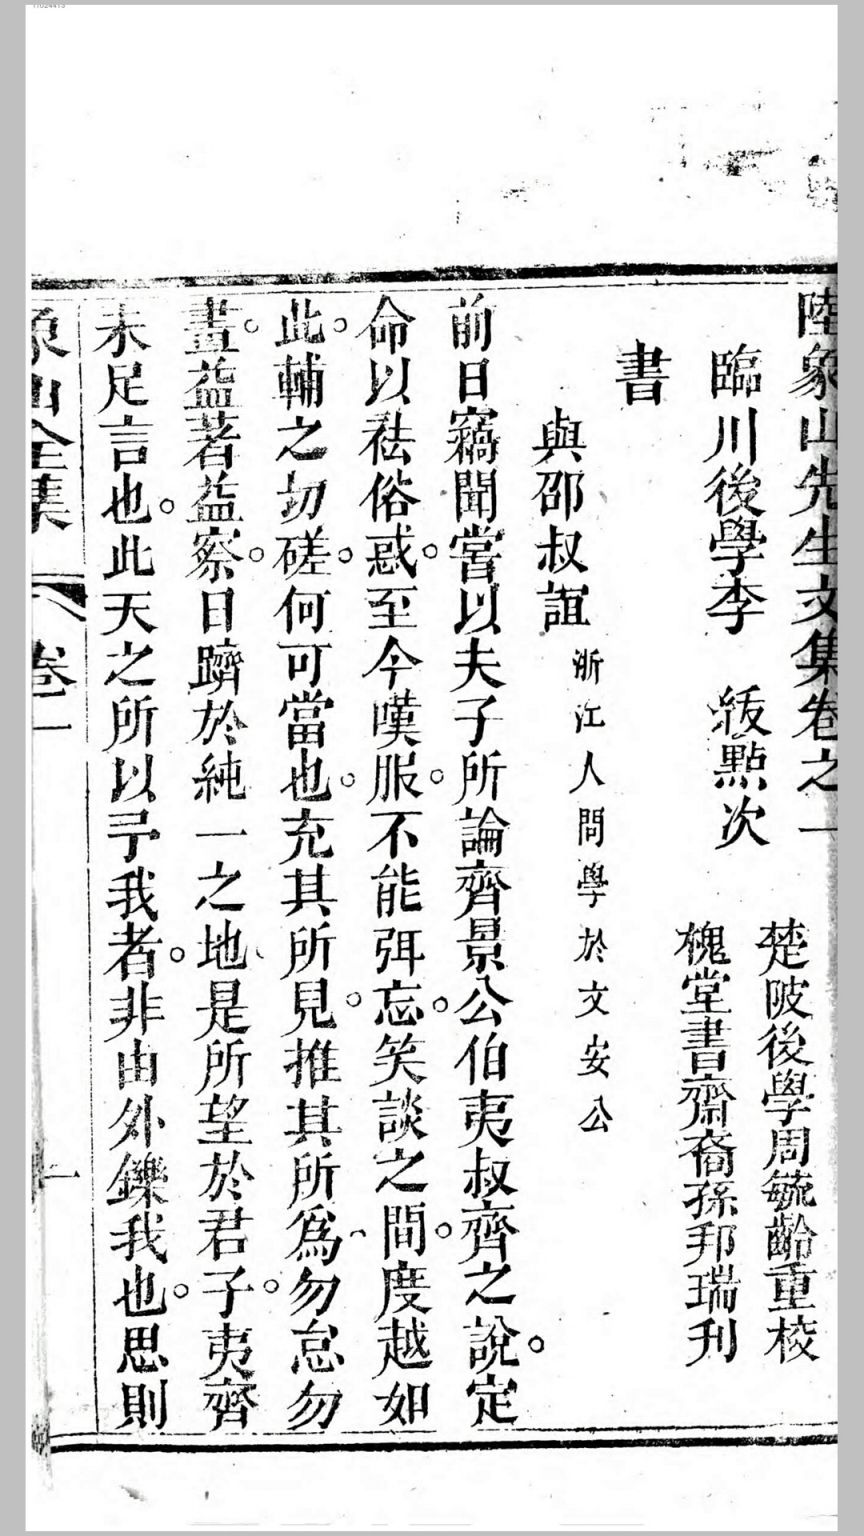 陸象山先生文集卷之一
臨川後學李　紱點次
楚陂後學周毓齡重校
槐堂書齋裔孫邦瑞刋
書
與邵叔誼 浙江人問學於文安公
前日竊聞嘗以夫子所論齊景公伯夷叔齊之說。定
命以祛俗惑。至今嘆服。不能弭忘。笑談之間。度越如
此。輔之切磋。何可當也。充其所見。推其所爲、勿怠勿
畫。益著益察。日躋於純一之地、是所望於君子。夷齊
未足言也。此天之所以予我者。非由外鑠我也。思則
象山全集　卷一　一